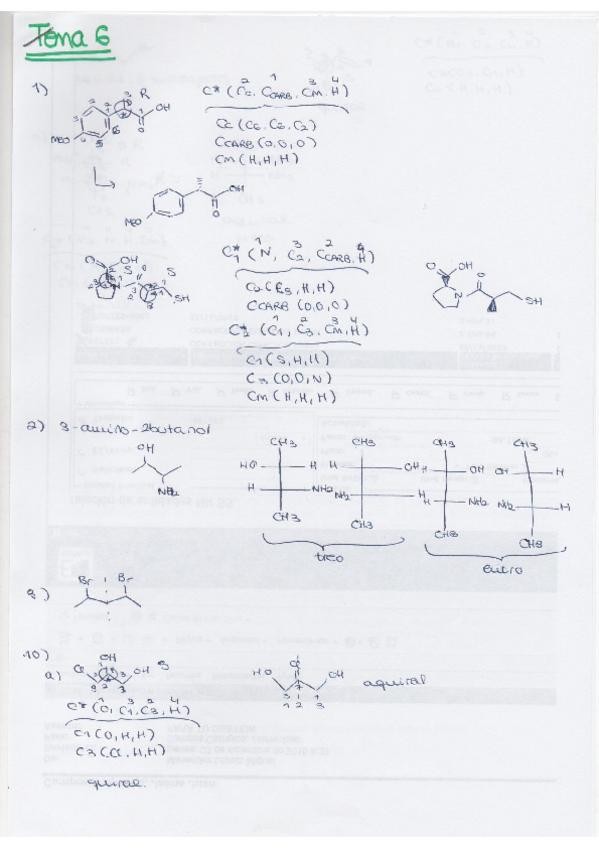 Tema 6
1)
R
OH
O
MeO
C* (Cc, CCARB, CM, H)
Cc (C6, C6, C2)
CCARB (O, O, O)
CM (H, H, H)
OH
O
MeO
O OH S S
N
SH
C*1 (N, C2, CCARB, H)
C2 (C3, H, H)
CCARB (O, O, O)
C*2 (C1, C3, CM, H)
C1 (S, H, H)
C3 (O, O, N)
CM (H, H, H)
O OH
N O SH
2) 3-amino-2butanol
OH
NH2
CH3 CH3 CH3 CH3
HO H H OH H OH OH H
H NH2 NH2 H H NH2 NH2 H
CH3 CH3 CH3 CH3
treo
eritro
Br Br
10)
a)
OH
Cl OH S
C* (O, C1, C3, H)
C1 (O, H, H)
C3 (Cl, H, H)
quiral
HO OH aquiral